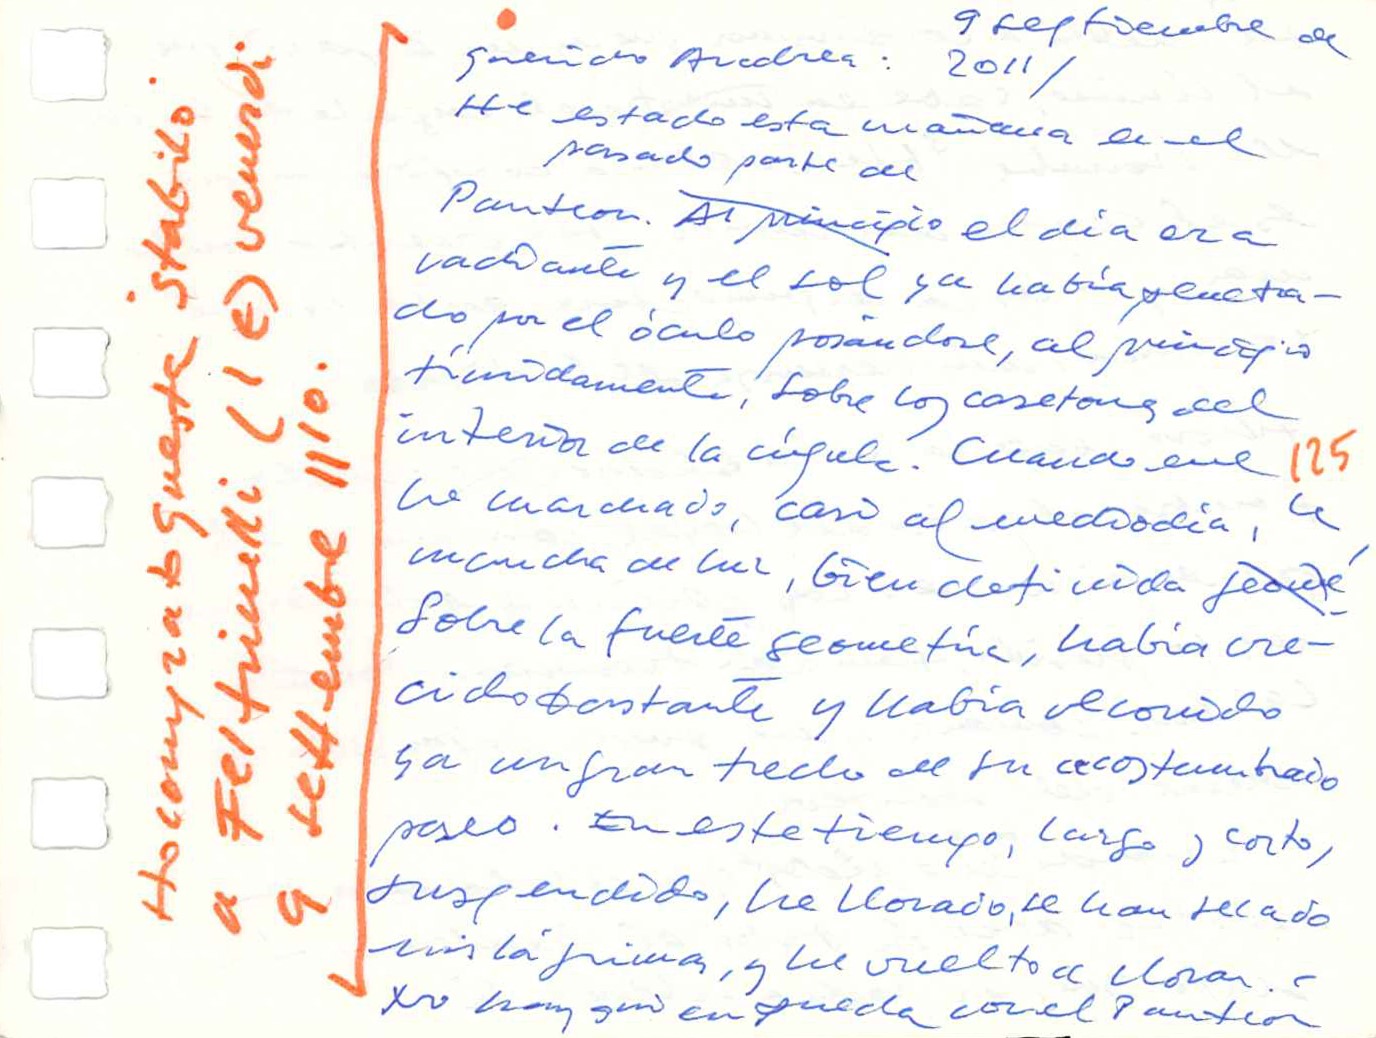 9 septiembre de
2011/
Querido Andrea:
He estado esta mañana en el
pasado parte de
Panteon. Al principio el día era
radiante y el sol ya había penetra-
do por el óculo posándose, al principio
tímidamente, sobre los casetones del
interior de la cúpula. Cuando me
he marchado, casi al mediodía, la
mancha de luz, bien definida
sobre la fuerte geometría, había cre-
cido bastante y había recorrido
ya un gran trecho de su acostumbrado
paseo. En este tiempo, largo y corto,
suspendido, he llorado, se han secado
mis lágrimas, y he vuelto a llorar.
No hay quien pueda con el Panteon
125
Ho comprato questa Stabilo
a Feltrinelli (1 e) venerdi
9 settembre 11/0.